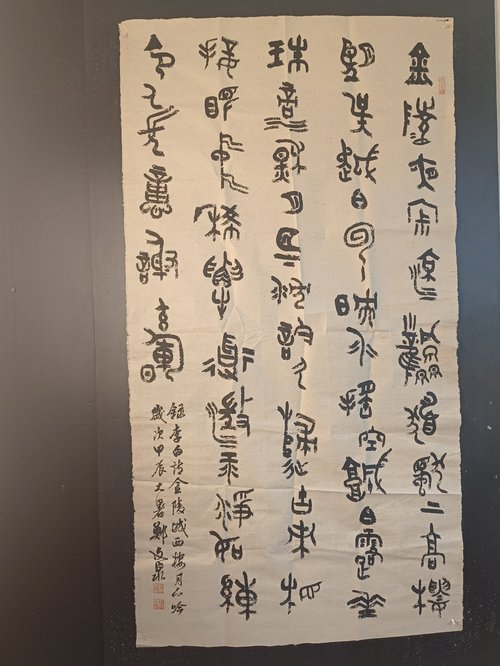 金陵夜寂涼風發獨上高樓
望吳越白雲映水搖空城白露垂
珠滴秋月月下沉吟久不歸古來相
接眼中稀解道澄江淨如練
令人長憶謝玄暉
錄李白詩金陵城西樓月下吟
歲次甲辰大暑鄭